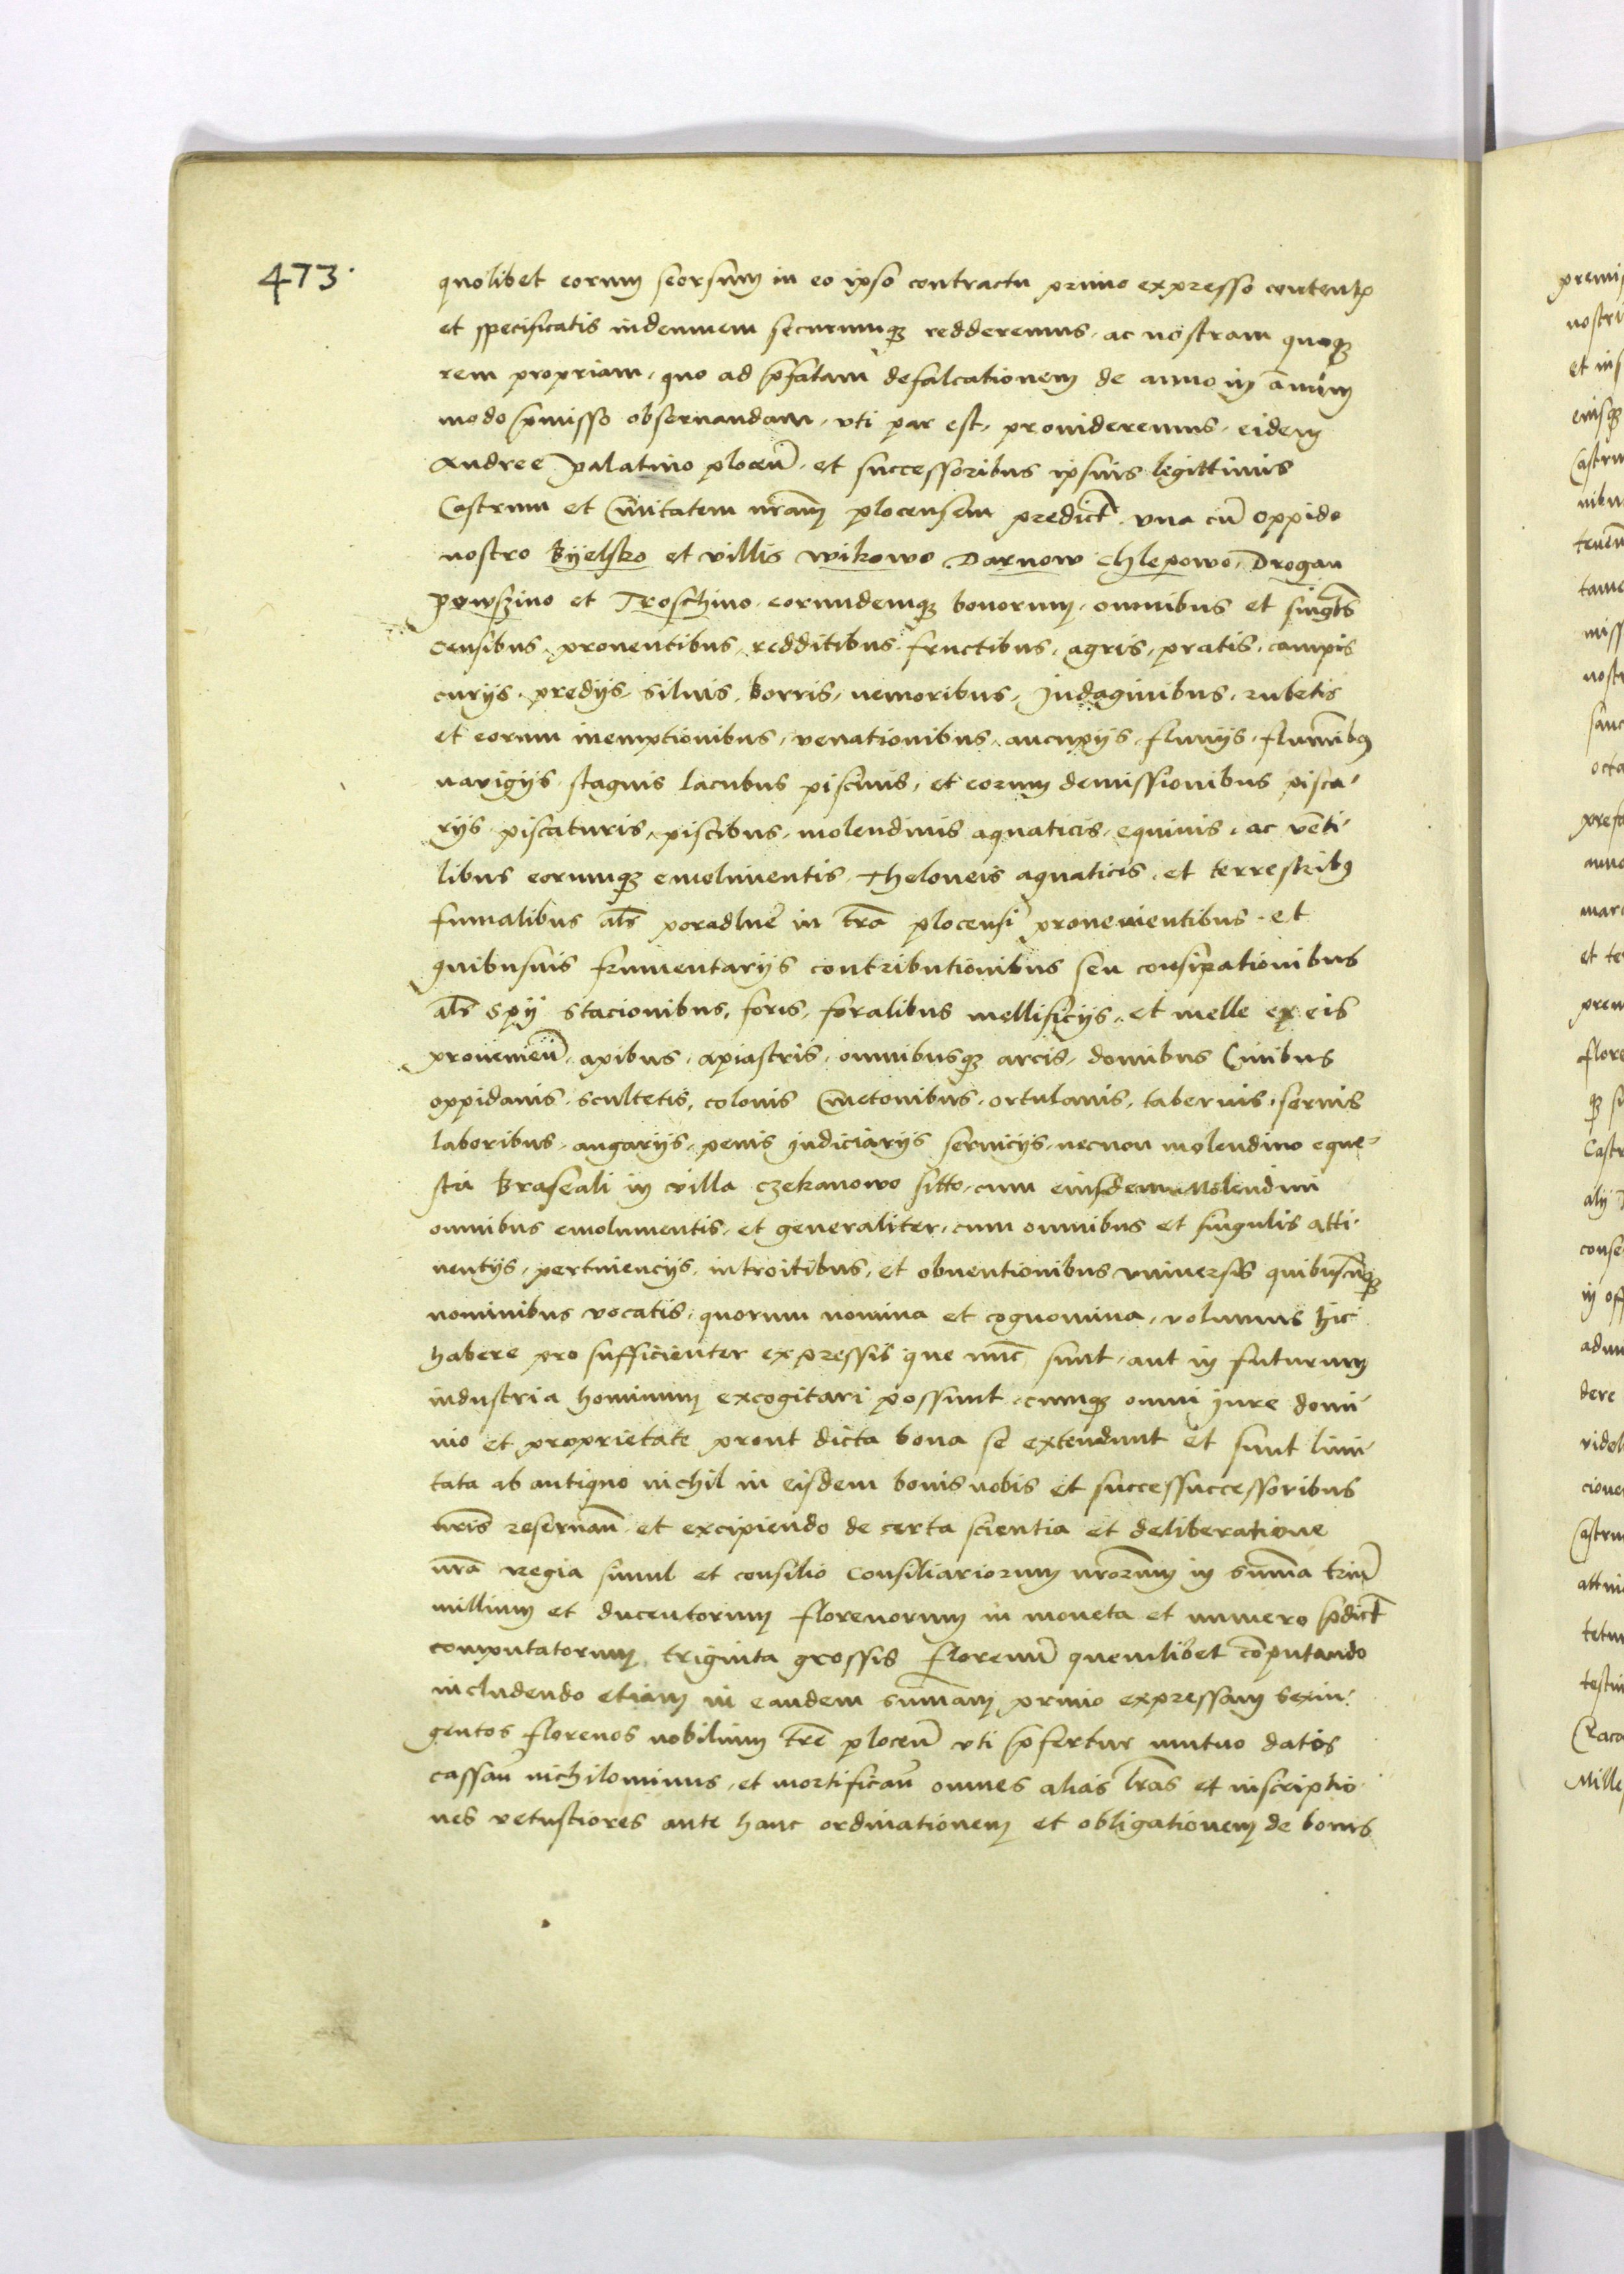 473.
quolibet eorum seorsum in eo ipso contractu primo expresso contentis
et specificatis indemnem securumque redderemus, ac nostram quoque
rem propriam, quo ad prefatam defalcationem de anno in annum
modo premisso observandam, uti par est, provideremus, eidem
Andree Palatino plocen̄ et successoribus ipsius legittimis
Castrum et Civitatem nr̄am plocensem predict̄ una cū Oppido
nostro Byelsko et villis wikowo Darnow Chlepowo, Drogan
powszino et Troschino eorundemque bonorum, omnibus et singl̄is
censibus, proventibus, redditibus, fructibus, agris, pratis, campis
curijs, predijs, silvis, borris, nemoribus, Indaginibus, rubetis
et eorum inemptionibus, venationibus, aucupijs, fluvijs, fluminibus
navigijs stagnis lacubus piscinis, et eorum demissionibus pisca-
rijs piscaturis, piscibus, molendinis aquaticis, equinis, ac venti-
libus eorumque emolumentis, Theloneis aquaticis, et terrestribus
fumalibus al̄s poradlne in tr̄a plocensi provenientibus, et
quibusvis frumentarijs contributionibus seu consipationibus
al̄s spij stacionibus, foris, foralibus mellificijs, et melle ex eis
provenien̄, apibus, apiastris, omnibusque arcis, domibus Civibus
oppidanis, scultetis, colonis Cmetonibus, ortulanis, tabernis, servis
laboribus, angarijs, penis Judiciarijs servicijs, necnon molendino eque-
stri Braseali in villa Czekanowo sitto, cum eiusdem Molendini
omnibus emolumentis, et generaliter, cum omnibus et singulis atti-
nentijs, pertinencijs, introitibus, et obventionibus universis quibuscūque
nominibus vocatis, quorum nomina et cognomina, volumus hic
habere pro sufficienter expressis que nunc sunt, aut in futurum
industria hominum excogitari possunt, cumque omni Jure domi-
nio et proprietate prout dicta bona se extendunt et sunt limi-
tata ab antiquo nichil in eisdem bonis nobis et successuccessoribus
nr̄is reservan̄ et excipiendo de certa scientia et deliberatione
nr̄a regia simul et consilio Consiliariorum nr̄orum in summa trium
millium et ducentorum florenorum in moneta et numero predict̄
computatorum, triginta grossis florenum quemlibet cōputando
includendo etiam in eandem summam primo expressam sexin-
gentos florenos nobilium tr̄e plocen̄ uti prefertur mutuo datos
cassan̄ nichilominus, et mortifican̄ omnes alias lr̄as et inscriptio-
nes vetustiores ante hanc ordinationem et obligationem de bonis